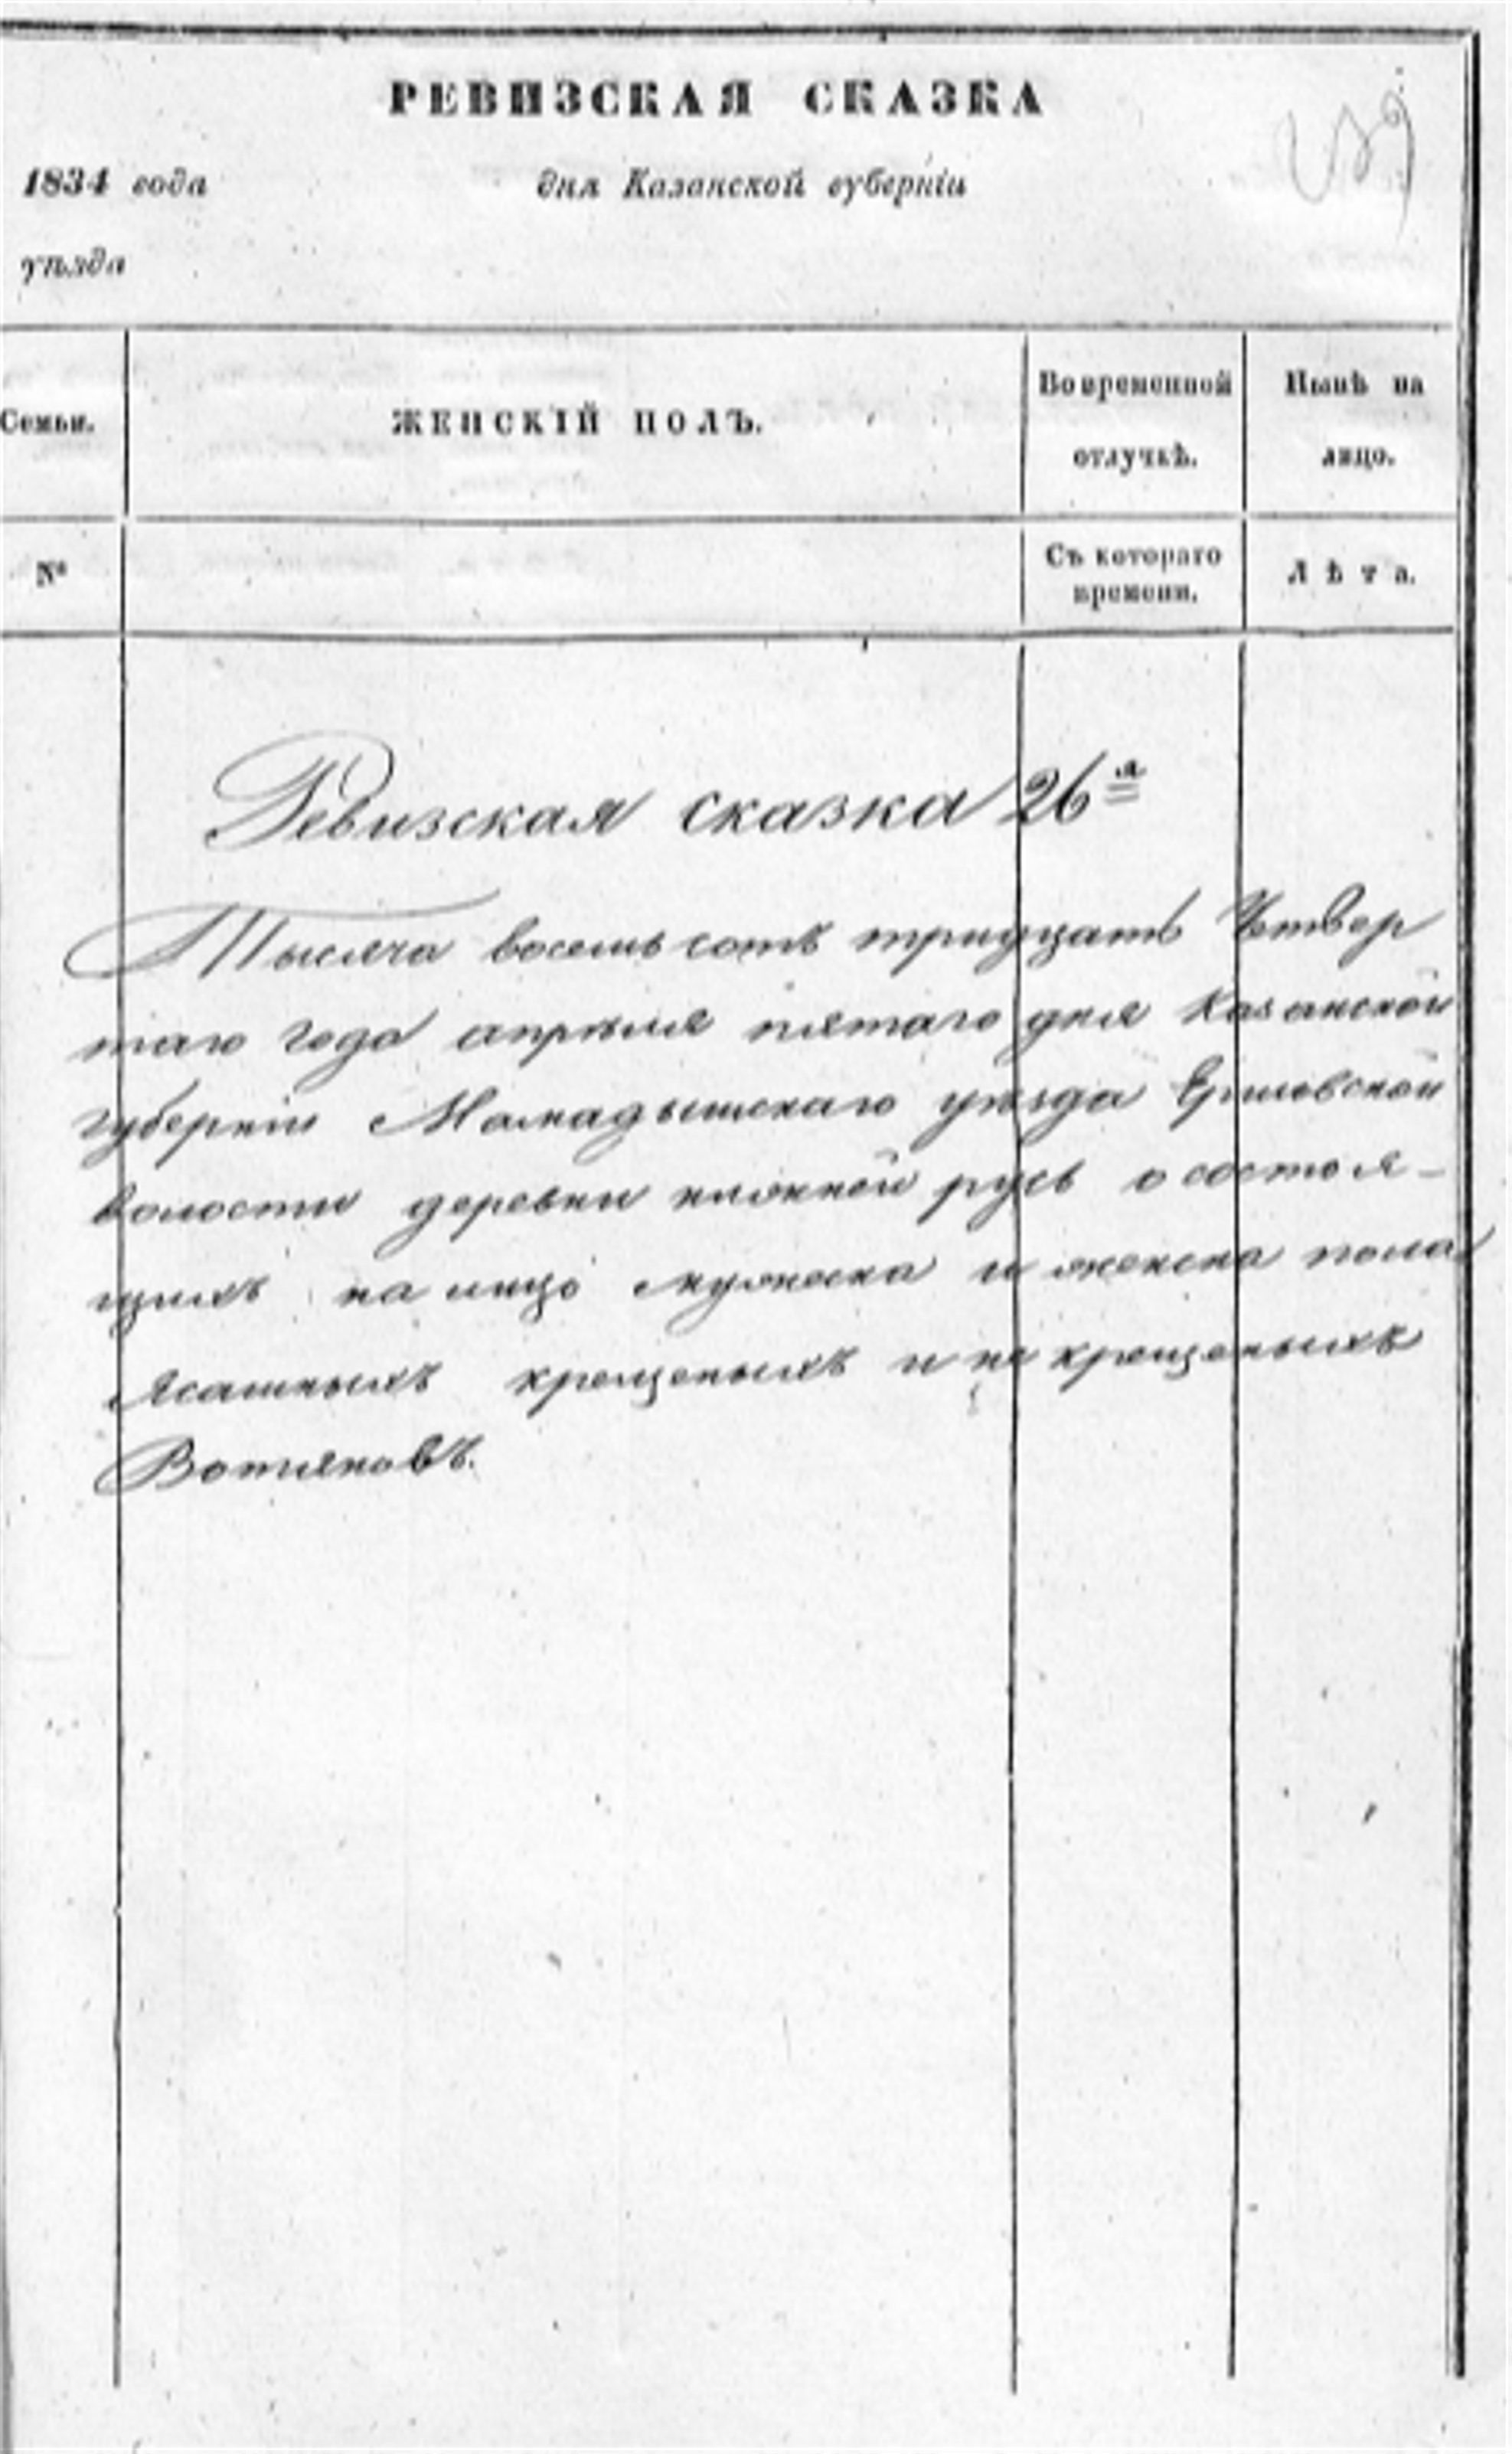 РЕВИЗСКАЯ СКАЗКА
1834 года дня Казанской губернiи
уѣзда
Семьи. ЖЕНСКIЙ ПОЛЪ. Во временной отлучкѣ. Нынѣ на лицо.
№ Съ котораго времени. Лѣта.
Ревизская сказка 26я
Тысяча восемь сотъ тридцать Четвер
таго года апрѣля пятаго дня Казанской
губернiи Мамадышскаго уѣзда
волости деревни нижней русь о состоя-
щихъ на лицо мужеска и женска пола
Ясашныхъ крещеныхъ и не крещеныхъ
Вотяковъ.